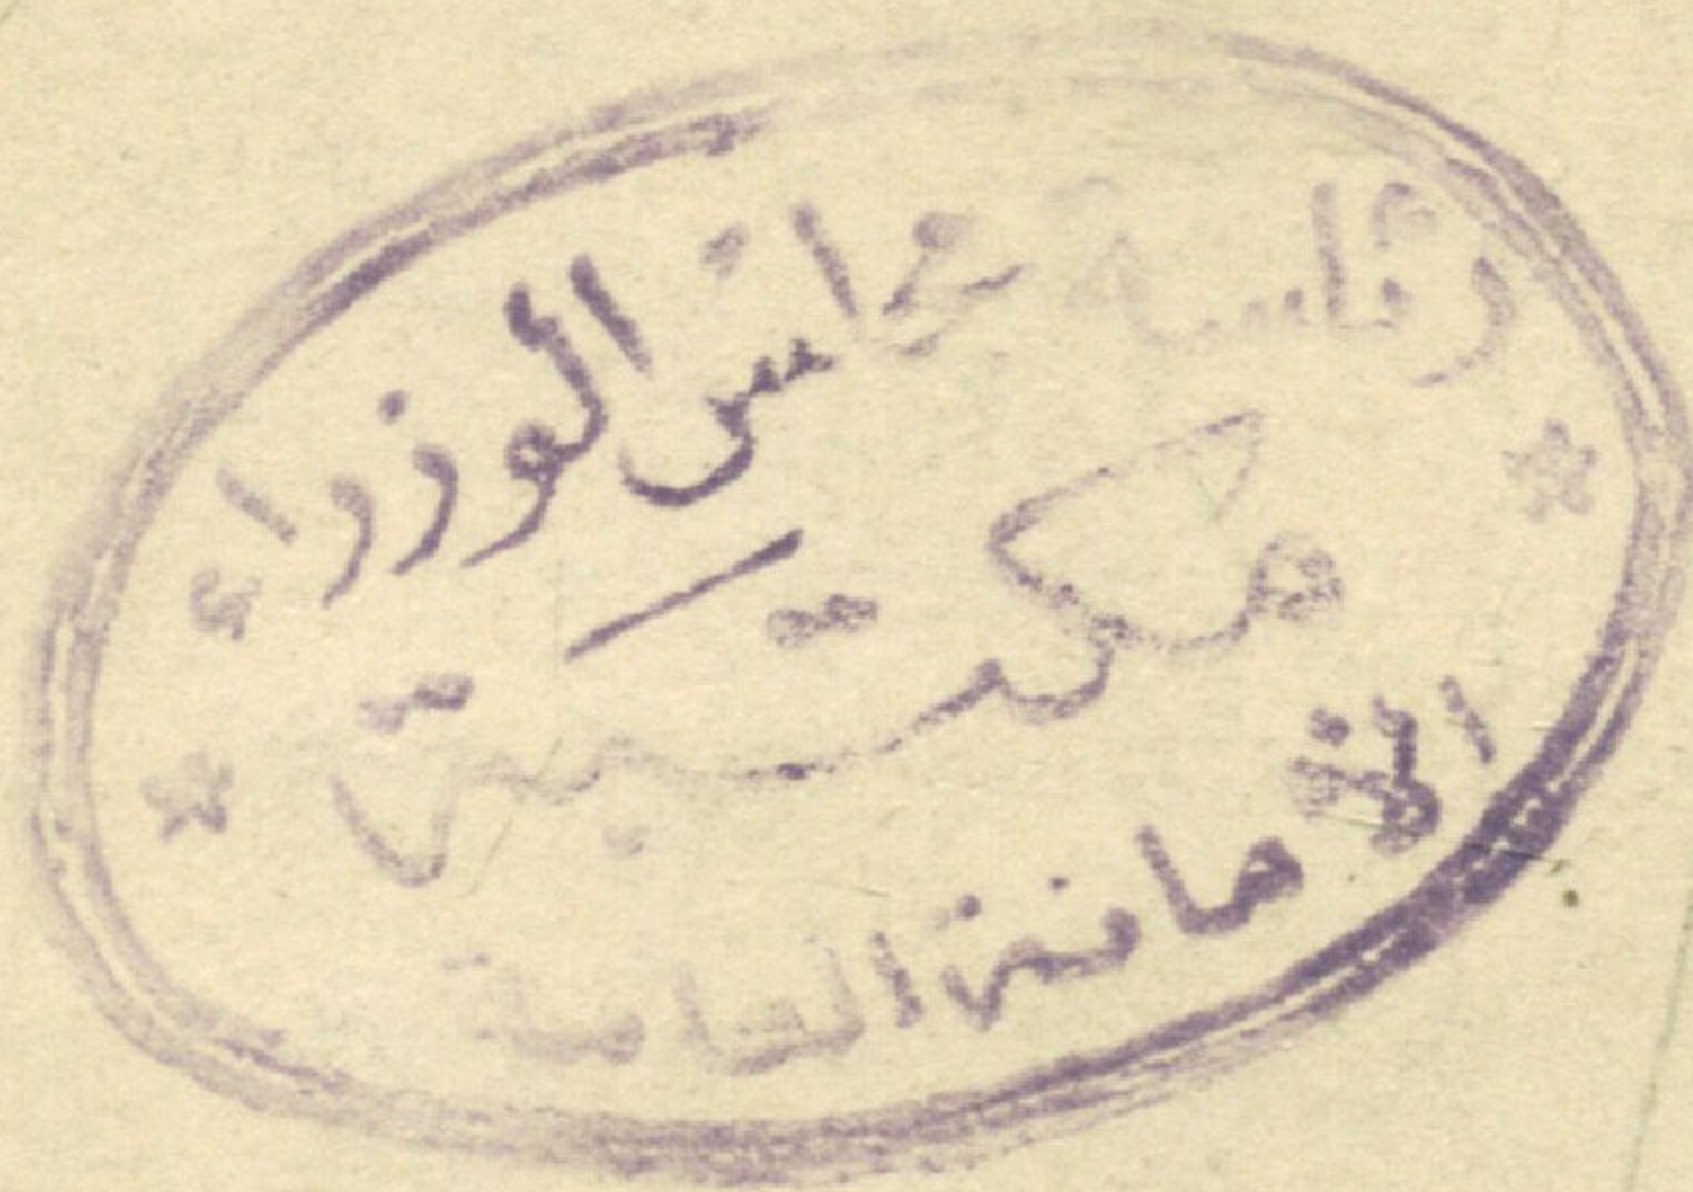 رئاسة مجلس الوزراء
مكتبة
الأمانة العامة